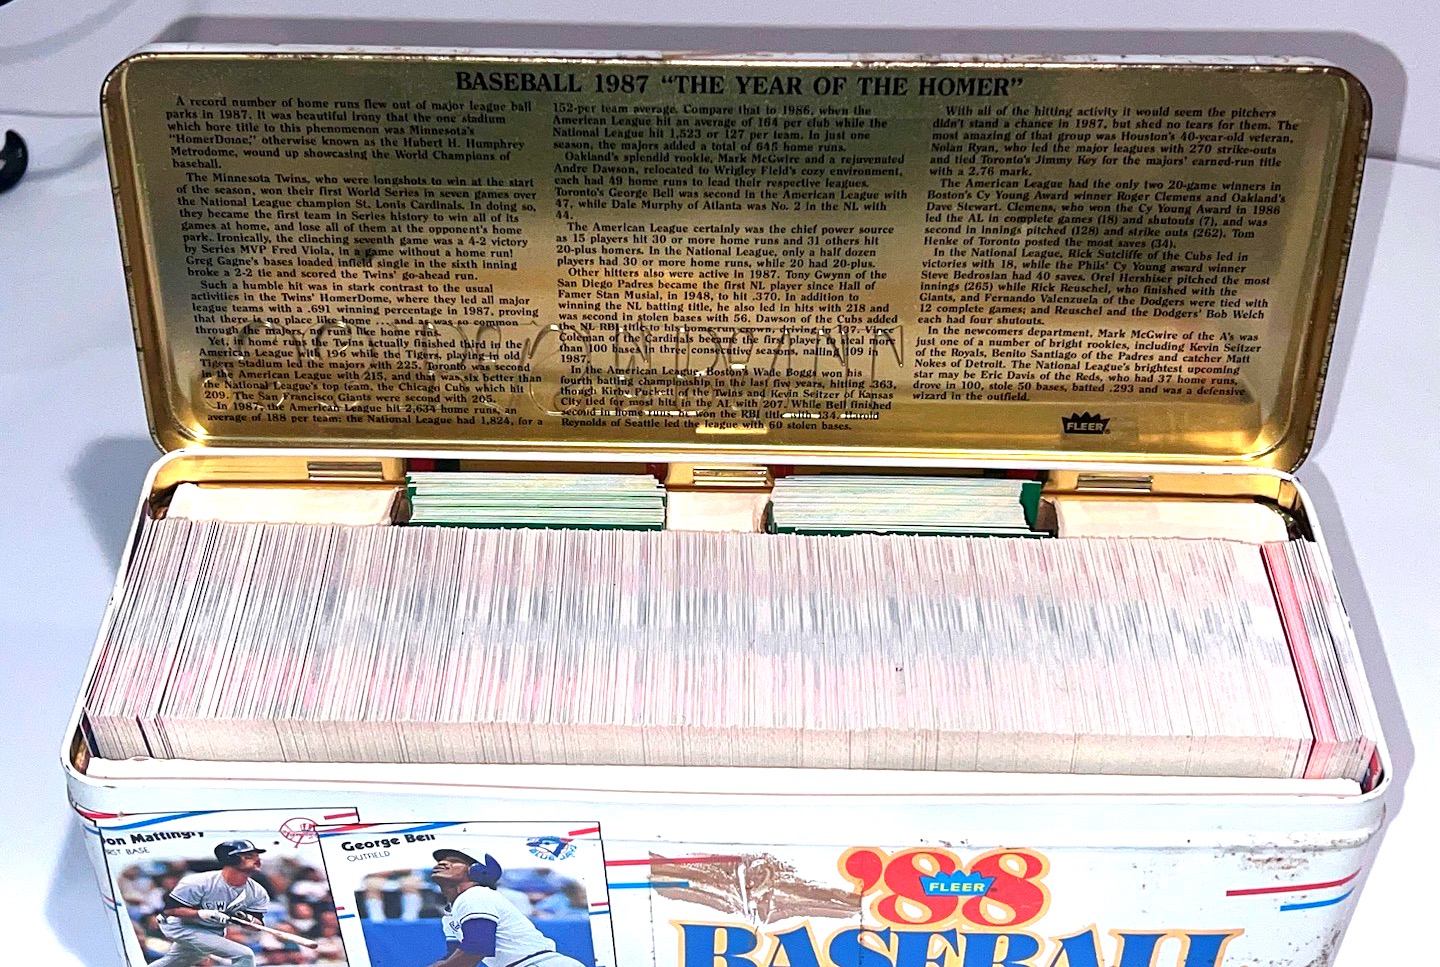 BASEBALL 1987 "THE YEAR OF THE HOMER"
A record number of home runs flew out of major league ball
parks in 1987. It was beautiful irony that the one stadium
which bore title to this phenomenon was Minnesota's
"HomerDome," otherwise known as the Hubert H. Humphrey
Metrodome, wound up showcasing the World Champions of
baseball.
The Minnesota Twins, who were longshots to win at the start
of the season, won their first World Series in seven games over
the National League champion St. Louis Cardinals. In doing so,
they became the first team in Series history to win all of its
games at home, and lose all of them at the opponent's home
park. Ironically, the clinching seventh game was a 4-2 victory
by Series MVP Fred Viola, in a game without a home run!
Greg Gagne's bases loaded infield single in the sixth inning
broke a 2-2 tie and scored the Twins' go-ahead run.
Such a humble hit was in stark contrast to the usual
activities in the Twins' HomerDome, where they led all major
league teams with a .691 winning percentage in 1987, proving
that there is no place like home ... and as was so common
through the majors, no runs like home runs.
Yet, in home runs the Twins actually finished third in the
American League with 196 while the Tigers, playing in old
Tigers Stadium led the majors with 225. Toronto was second
in the American League with 215, and that was six better than
the National League's top team, the Chicago Cubs which hit
209. The San Francisco Giants were second with 205.
In 1987, the American League hit 2,634 home runs, an
average of 188 per team: the National League had 1,824, for a
152-per team average. Compare that to 1986, when the
American League hit an average of 164 per club while the
National League hit 1,523 or 127 per team. In just one
season, the majors added a total of 645 home runs.
Oakland's splendid rookie, Mark McGwire and a rejuvenated
Andre Dawson, relocated to Wrigley Field's cozy environment,
each had 49 home runs to lead their respective leagues.
Toronto's George Bell was second in the American League with
47, while Dale Murphy of Atlanta was No. 2 in the NL with
44.
The American League certainly was the chief power source
as 15 players hit 30 or more home runs and 31 others hit
20-plus homers. In the National League, only a half dozen
players had 30 or more home runs, while 20 had 20-plus.
Other hitters also were active in 1987. Tony Gwynn of the
San Diego Padres became the first NL player since Hall of
Famer Stan Musial, in 1948, to hit .370. In addition to
winning the NL batting title, he also led in hits with 218 and
was second in stolen bases with 56. Dawson of the Cubs added
the NL RBI title to his home run crown, driving in 137. Vince
Coleman of the Cardinals became the first player to steal more
than 100 bases in three consecutive seasons, nailing 109 in
1987.
In the American League, Boston's Wade Boggs won his
fourth batting championship in the last five years, hitting .363,
though Kirby Puckett of the Twins and Kevin Seitzer of Kansas
City tied for most hits in the AL with 207. While Bell finished
second in home runs, he won the RBI title with 134. Harold
Reynolds of Seattle led the league with 60 stolen bases.
With all of the hitting activity it would seem the pitchers
didn't stand a chance in 1987, but shed no tears for them. The
most amazing of that group was Houston's 40-year-old veteran,
Nolan Ryan, who led the major leagues with 270 strike-outs
and tied Toronto's Jimmy Key for the majors' earned-run title
with a 2.76 mark.
The American League had the only two 20-game winners in
Boston's Cy Young Award winner Roger Clemens and Oakland's
Dave Stewart. Clemens, who won the Cy Young Award in 1986
led the AL in complete games (18) and shutouts (7), and was
second in innings pitched (128) and strike outs (262). Tom
Henke of Toronto posted the most saves (34).
In the National League, Rick Sutcliffe of the Cubs led in
victories with 18, while the Phils' Cy Young award winner
Steve Bedrosian had 40 saves. Orel Hershiser pitched the most
innings (265) while Rick Reuschel, who finished with the
Giants, and Fernando Valenzuela of the Dodgers were tied with
12 complete games; and Reuschel and the Dodgers' Bob Welch
each had four shutouts.
In the newcomers department, Mark McGwire of the A's was
just one of a number of bright rookies, including Kevin Seitzer
of the Royals, Benito Santiago of the Padres and catcher Matt
Nokes of Detroit. The National League's brightest upcoming
star may be Eric Davis of the Reds, who had 37 home runs,
drove in 100, stole 50 bases, batted .293 and was a defensive
wizard in the outfield.
FLEER
on Mattingly
RST BASE
George Bell
OUTFIELD
'88
FLEER
BASEBALL